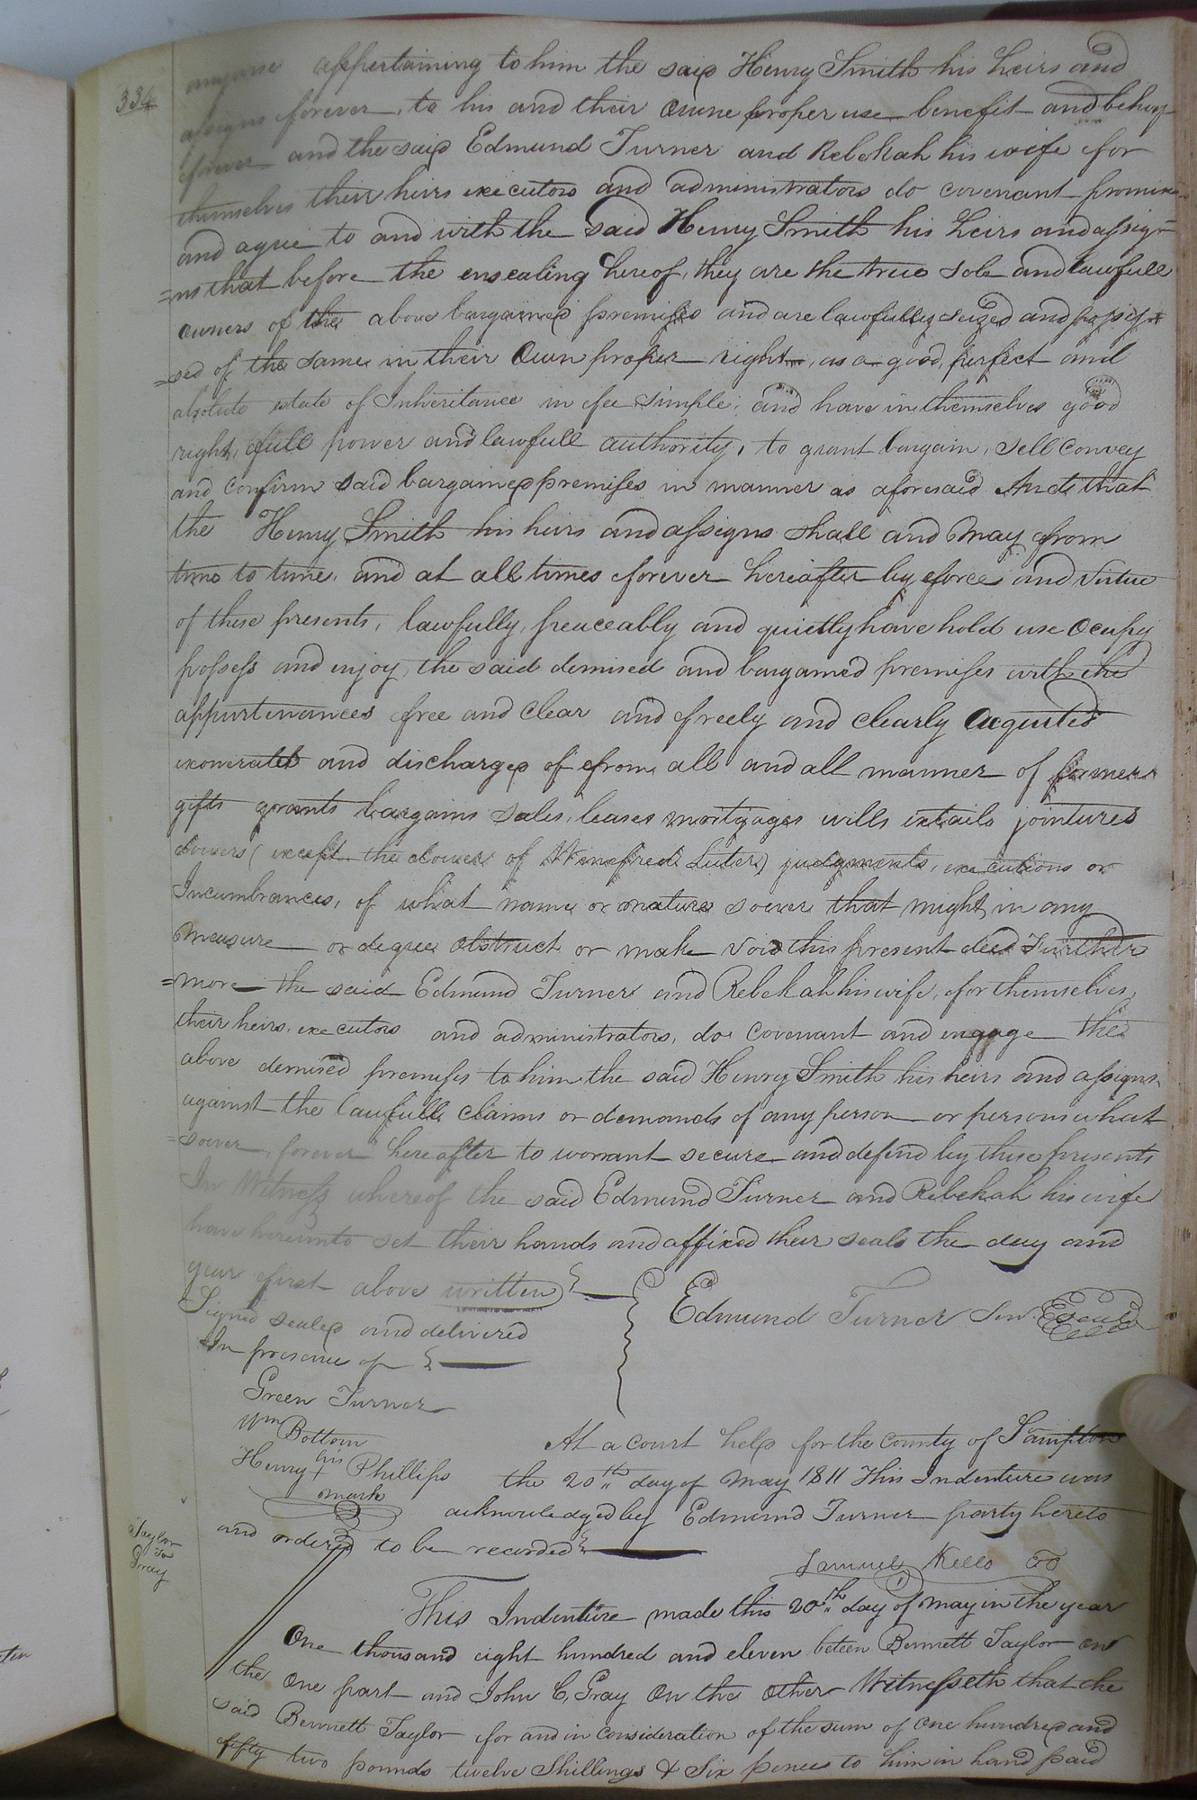 334
anywise appertaining to him the said Henry Smith his heirs and
assigns forever, to his and their owne proper use benefit and behoof
forever and the said Edmund Turner and Rebekah his wife for
themselves their heirs executors and administrators do covenant promise
and agree to and with the said Henry Smith his heirs and assig=
=ns that before the ensealing hereof, they are the true sole and lawfull
owners of the above bargained premises and are lawfully seized and posses=
=sed of the same in their own proper right, as a good, perfect and
absolute estate of Inheritance in fee simple, and have in themselves good
right, full power and lawfull authority, to grant bargain, sell convey
and confirm said bargained premises in manner as aforesaid And that
the Henry Smith his heirs and assigns shall and may from
time to time, and at all times forever hereafter by force and virtue
of these presents, lawfully, peaceably and quietly have hold use ocupy
possess and enjoy, the said demised and bargained premises with the
appurtenances free and clear and freely and clearly acquited
exonerated and discharged of from all and all manner of former
gifts grants bargains sales, leases mortgages wills entails jointures
dowers (except the dower of Winefred Luter) judgments, executions or
Incumbrances, of what name or nature soever that might in any
measure or degree obstruct or make void this present deed Further
=more the said Edmund Turner and Rebekah his wife, for themselves,
their heirs, executors and administrators, do covenant and engage the
above demised premises to him the said Henry Smith his heirs and assigns
against the lawfull claims or demands of any person or persons what
=soever, forever hereafter to warrant secure and defend by these presents
In Witness whereof the said Edmund Turner and Rebekah his wife
have hereunto set their hands and affixed their seals the day and
year first above written
Edmund Turner Sen. Seal
Signed sealed and delivered
In presence of
Green Turner
Wm Bottom
Henry his + mark Phillips
At a court held for the county of Southampton
the 20th day of May 1811 This Indenture was
acknowledged by Edmund Turner party hereto
and ordered to be recorded
Samuel Kello CC
Taylor
To
Gray
This Indenture made this 20th day of May in the year
One thousand eight hundred and eleven beteen Bennett Taylor on
the One part and John C. Gray On the other Witnesseth that the
said Bennett Taylor for and in consideration of the sum of One hundred and
fifty two pounds twelve Shillings & Six pence to him in hand paid